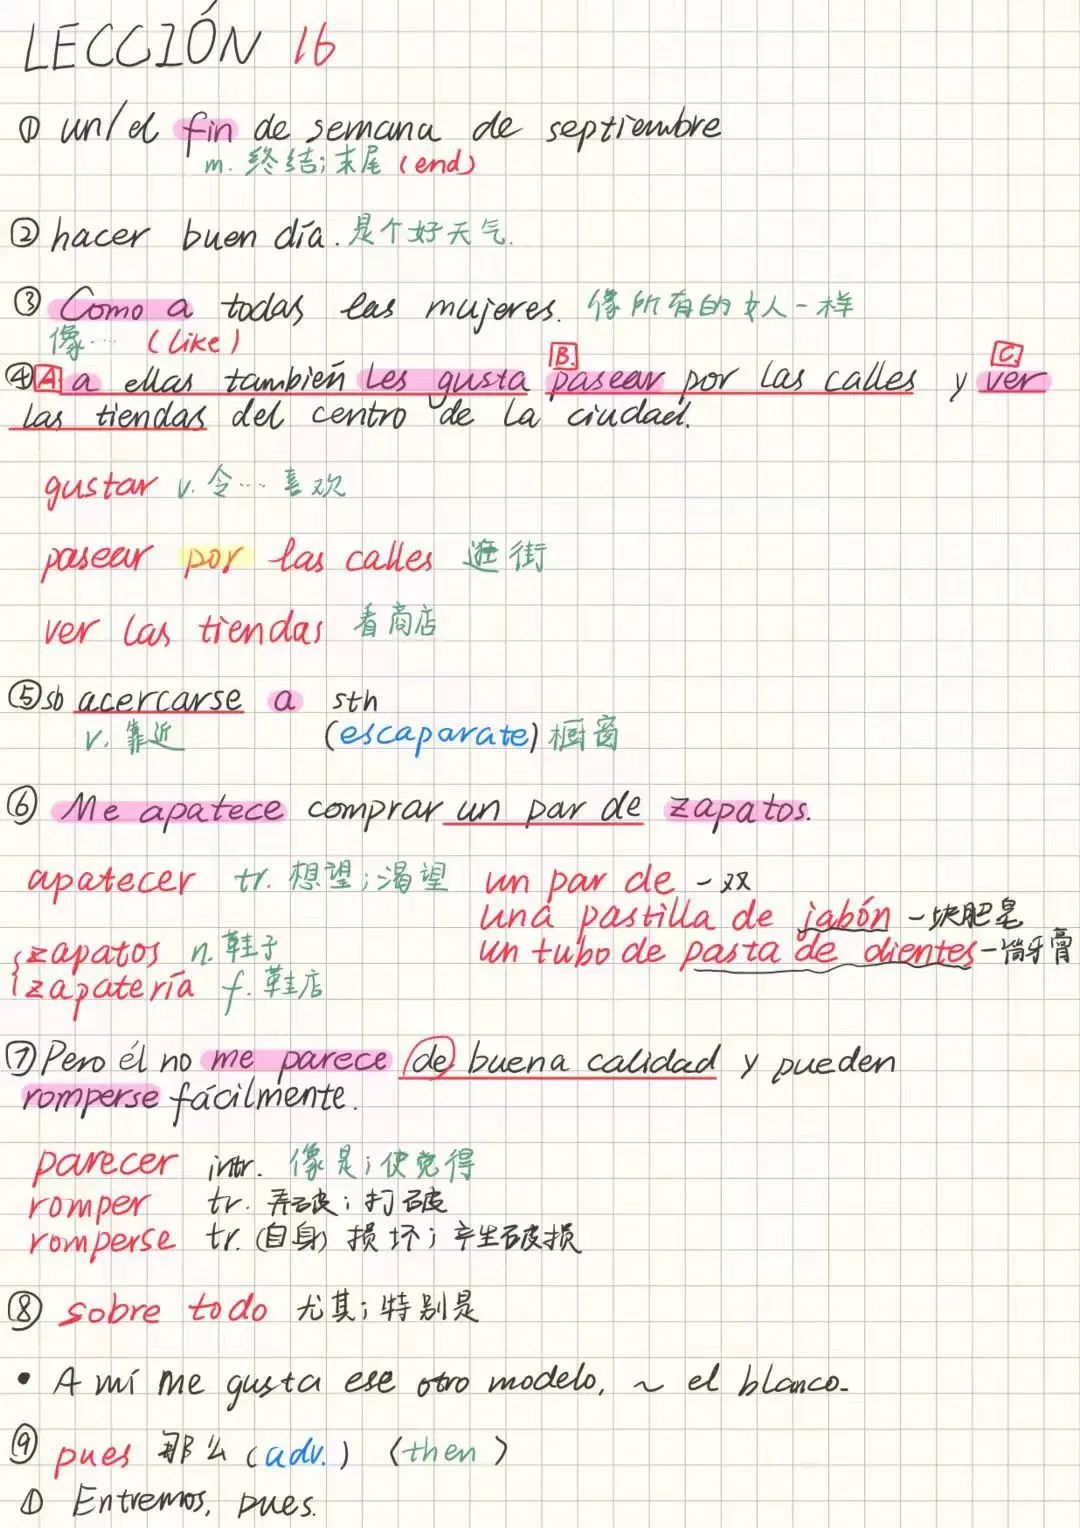 LECCIÓN 16
① un/el fin de semana de septiembre
m. 终结;末尾 (end)
② hacer buen día. 是个好天气.
③ Como a todas las mujeres. 像所有的女人一样
像… (like)
B. C.
④ A a ellas también les gusta pasear por las calles y ver
las tiendas del centro de la ciudad.
gustar v. 令…喜欢
pasear por las calles 逛街
ver las tiendas 看商店
⑤ sb acercarse a sth
v. 靠近 (escaparate) 橱窗
⑥ Me apatece comprar un par de zapatos.
apatecer tr. 想望;渴望 un par de 一双
una pastilla de jabón 一块肥皂
zapatos n. 鞋子 un tubo de pasta de dientes 一筒牙膏
zapatería f. 鞋店
⑦ Pero él no me parece de buena calidad y pueden
romperse fácilmente.
parecer intr. 像是;使觉得
romper tr. 弄破;打破
romperse tr. (自身) 损坏;产生破损
⑧ sobre todo 尤其;特别是
• A mí me gusta ese otro modelo, ~ el blanco.
⑨ pues 那么 (adv.) (then)
① Entremos, pues.